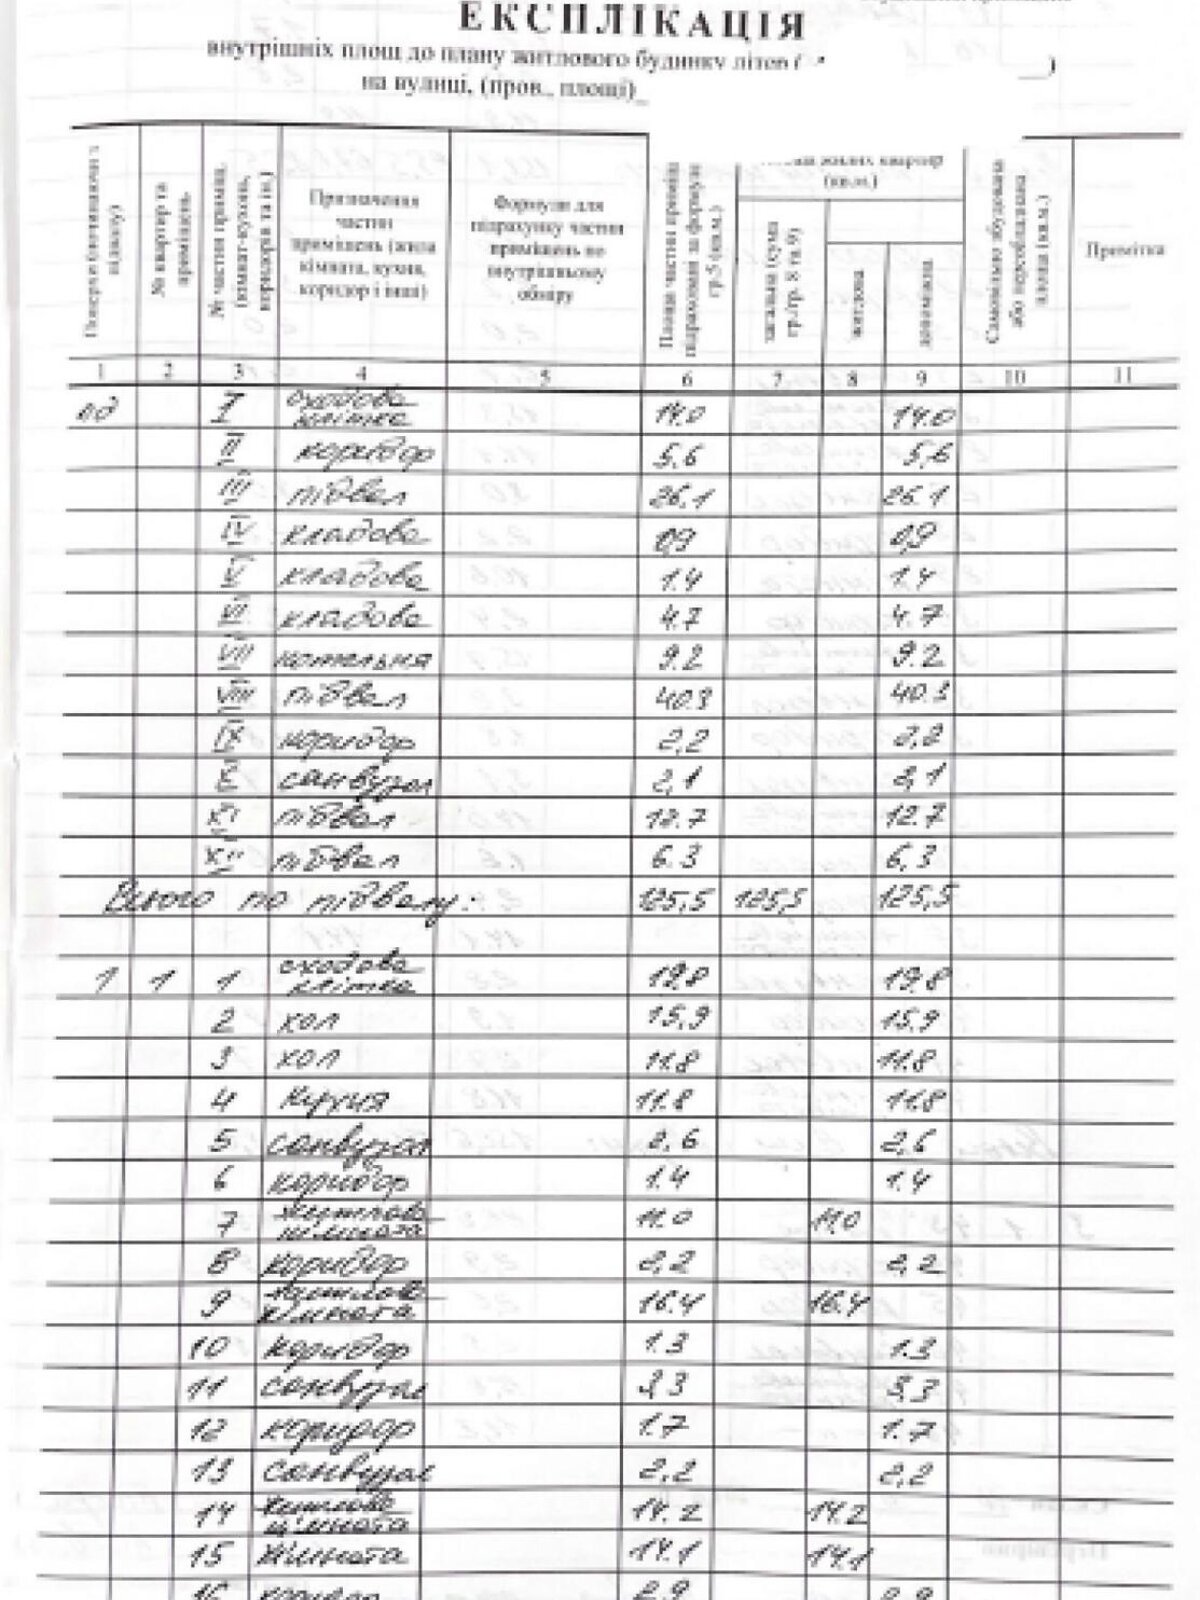 ЕКСПЛІКАЦІЯ
внутрішніх площ до плану житлового будинку літер (
)
на вулиці, (пров., площі)
Поверхи (починаючи з підвалу)
№ квартир та приміщень
№ частин приміщ. (кімнат-кухонь, коридорів та ін.)
Призначення частин приміщень (жила кімната, кухня, коридор і інші)
Формули для підрахунку частин приміщень по внутрішньому обміру
Площа частин приміщ. підрахована за формулою гр.5 (кв.м.)
жилих квартир (кв.м.)
загальна (сума гр./гр. 8 та 9)
житлова
допоміжна
Самовільно збудована або переобладнана площа (кв.м.)
Примітка
1 2 3 4 5 6 7 8 9 10 11
під I сходова клітка 14.0 14.0
II коридор 5,6 5,6
III підвал 26,1 26.1
IV кладова 0,9 0,9
V кладова 1.4 1.4
VI кладова 4.7 4.7
VII котельня 9.2 9.2
VIII підвал 40.3 40.3
IX коридор 2,2 2,2
X санвузол 2,1 2,1
XI підвал 12.7 12.7
XII підвал 6.3 6,3
Всього по підвалу: 125,5 125,5 125,5
1 1 1 сходова клітка 19.8 19.8
2 хол 15,9 15,9
3 хол 11.8 11.8
4 кухня 11.8 11.8
5 санвузол 2,6 2,6
6 коридор 1.4 1.4
7 житлова кімната 11.0 11,0
8 коридор 2,2 2,2
9 житлова кімната 16.4 16.4
10 коридор 1.3 1.3
11 санвузол 3,3 3,3
12 коридор 1.7 1.7
13 санвузол 2,2 2,2
14 житлова кімната 14.2 14.2
15 кімната 14.1 14.1
16 коридор 2.9 2.9